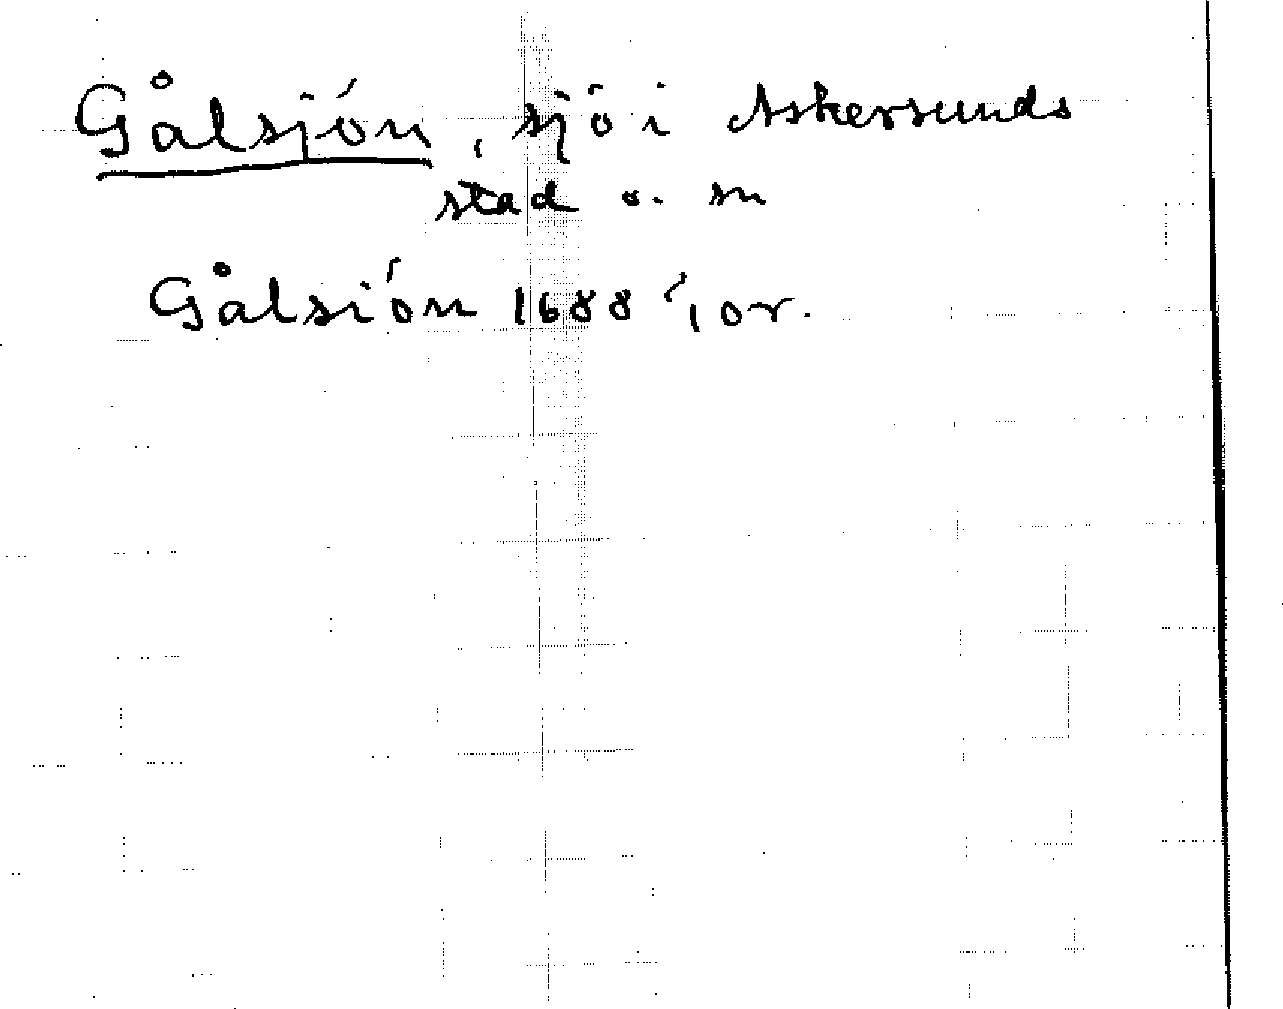 Gålsjön, sjö i Askersunds
stad o. sn
Gålsiön 1688 jor.